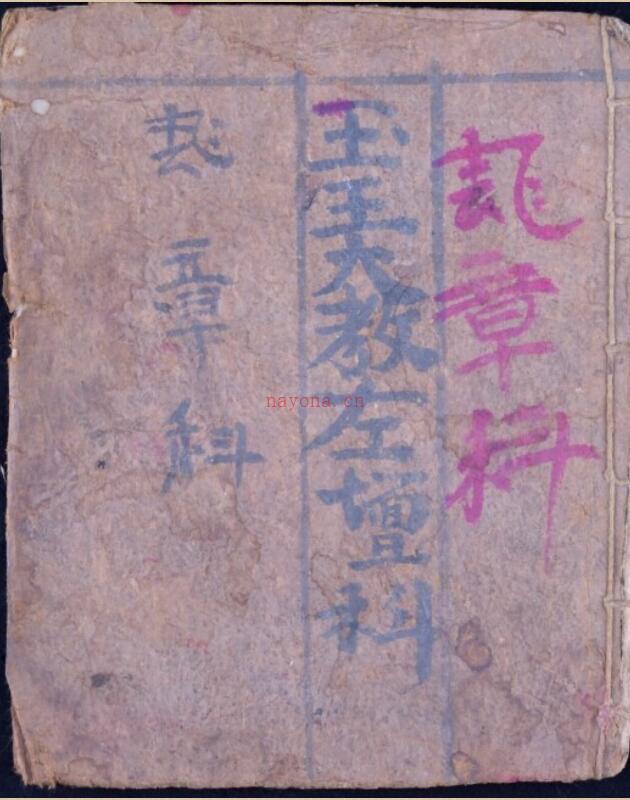 章科
玉王大教左壇科
章科
nayona.cn